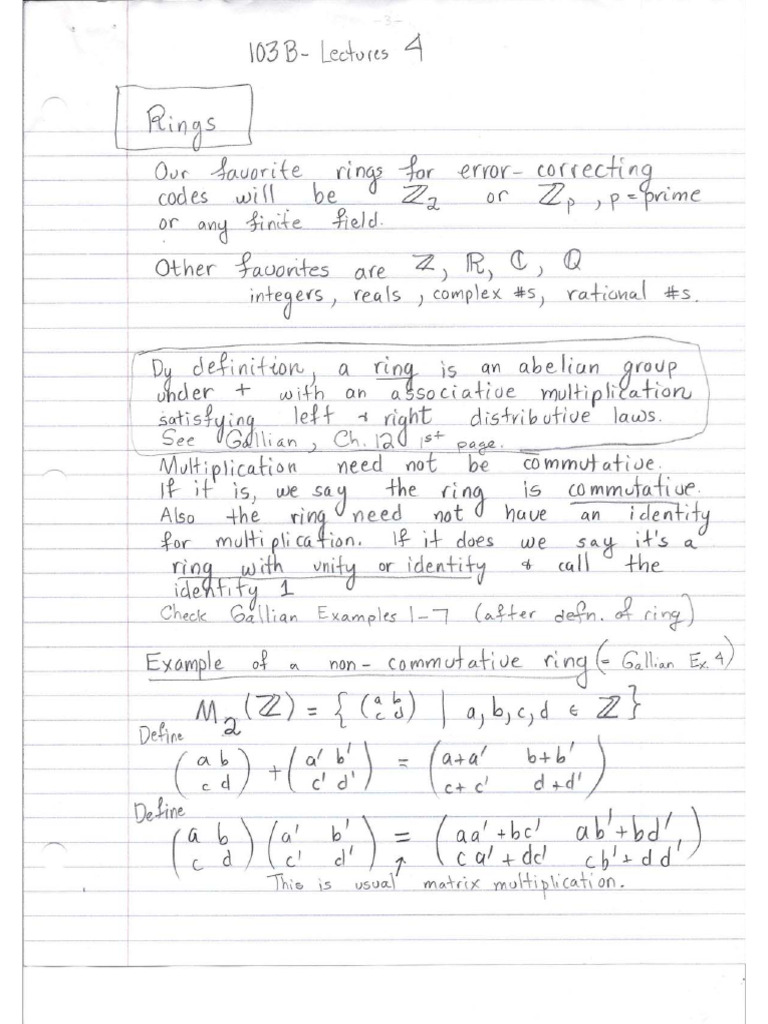 -3-
103B- Lectures 4
Rings
Our favorite rings for error-correcting
codes will be ℤ₂ or ℤₚ, p=prime
or any finite field.
Other favorites are ℤ, ℝ, ℂ, ℚ
integers, reals, complex #s, rational #s.
By definition, a ring is an abelian group
under + with an associative multiplication
satisfying left & right distributive laws.
See Gallian, Ch. 12 1st page.
Multiplication need not be commutative.
If it is, we say the ring is commutative.
Also the ring need not have an identity
for multiplication. If it does we say it's a
ring with unity or identity & call the
identity 1
Check Gallian Examples 1-7 (after defn. of ring)
Example of a non-commutative ring (= Gallian Ex. 4)
M₂(ℤ) = { (a b; c d) | a,b,c,d ∈ ℤ}
Define
(a b; c d) + (a' b'; c' d') = (a+a' b+b'; c+c' d+d')
Define
(a b; c d)(a' b'; c' d') = (aa'+bc' ab'+bd'; ca'+dc' cb'+dd')
This is usual matrix multiplication.